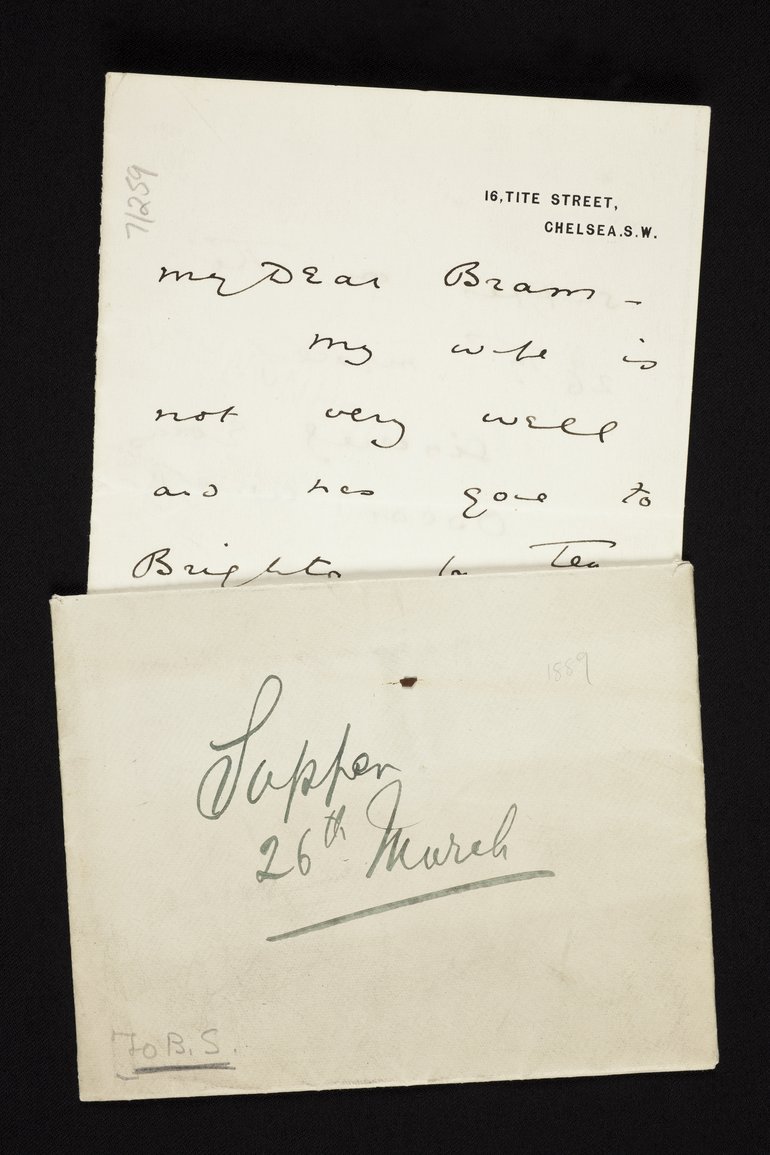 7/259
16, TITE STREET,
CHELSEA. S.W.
My Dear Bram –
My wife is
not very well
and has gone to
Brighton for Ten
1889
Supper
26th March
To B.S.